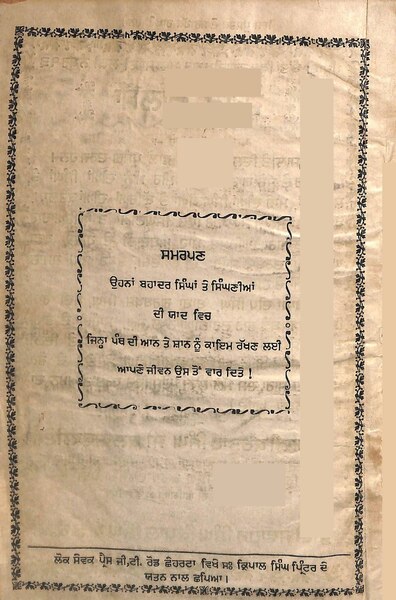 ਸਮਰਪਣ
ਉਹਨਾਂ ਬਹਾਦਰ ਸਿੰਘਾਂ ਤੇ ਸਿੰਘਣੀਆਂ
ਦੀ ਯਾਦ ਵਿਚ
ਜਿਨ੍ਹਾ ਪੰਥ ਦੀ ਆਨ ਤੇ ਸ਼ਾਨ ਨੂੰ ਕਾਇਮ ਰੱਖਣ ਲਈ
ਆਪਣੇ ਜੀਵਨ ਉਸ ਤੋਂ ਵਾਰ ਦਿਤੇ !
ਲੋਕ ਸੇਵਕ ਪ੍ਰੈਸ ਜੀ.ਟੀ. ਰੋਡ ਛੇਹਰਟਾ ਵਿਖੇ ਸਃ ਕ੍ਰਿਪਾਲ ਸਿੰਘ ਪ੍ਰਿੰਟਰ ਦੇ
ਯਤਨ ਨਾਲ ਛਪਿਆ ।